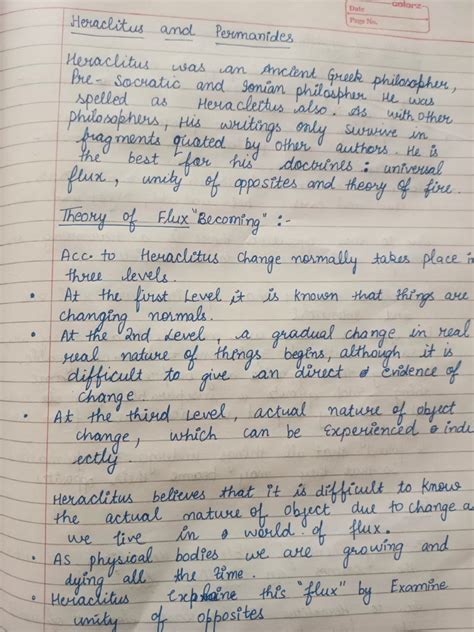 Date
Page No.
Heraclitus and Permanides
Heraclitus was an Ancient Greek philosopher,
Pre-Socratic and Ionian philospher He was
spelled as Heracleitus also. As with other
philosophers, His writings only survive in
fragments quated by other authors. He is
the best for his doctrines: universal
flux, unity of opposites and theory of fire.
Theory of Flux "Becoming" :-
Acc. to Heraclitus Change normally takes place in
three levels.
• At the first Level it is known that things are
changing normals.
• At the 2nd Level, a gradual change in real
real nature of things begins, although it is
difficult to give an direct evidence of
change.
• At the third Level, actual nature of object
change, which can be experienced indir
ectly.
Heraclitus believes that it is difficult to Know
the actual nature of object due to change as
we live in a world of flux.
• As physical bodies we are growing and
dying all the time.
• Heraclitus Explaine this "flux" by Examine
unity of opposites